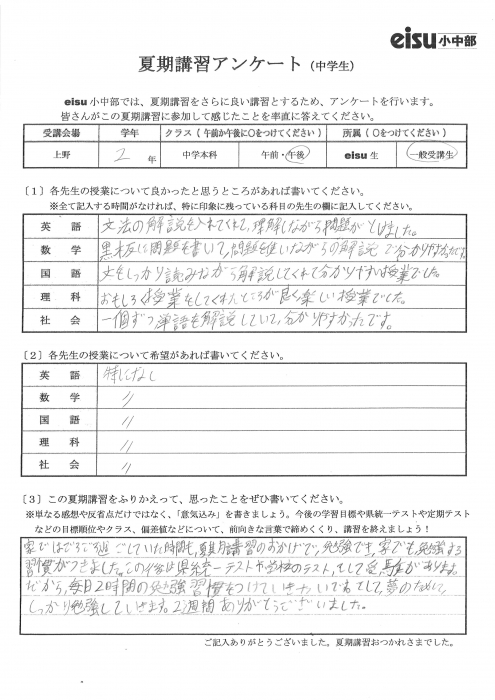 eisu 小中部
夏期講習アンケート（中学生）
eisu 小中部では、夏期講習をさらに良い講習とするため、アンケートを行います。
皆さんがこの夏期講習に参加して感じたことを率直に答えてください。
受講会場 学年 クラス（午前か午後に○をつけてください） 所属（○をつけてください）
上野 2 年 中学本科 午前・午後 eisu 生 一般受講生
［1］各先生の授業について良かったと思うところがあれば書いてください。
※全て記入する時間がなければ、特に印象に残っている科目の先生の欄に記入してください。
英 語 文法の解説を入れてくれて、理解しながら問題がとけました。
数 学 黒板に問題を書いて、問題を使いながらの解説で分かりやすかったです。
国 語 文をしっかり読みながら解説してくれて分かりやすい授業でした。
理 科 おもしろく授業をしてくれたところが良く楽しい授業でした。
社 会 一個ずつ単語を解説していて、分かりやすかったです。
［2］各先生の授業について希望があれば書いてください。
英 語 特になし
数 学 〃
国 語 〃
理 科 〃
社 会 〃
［3］この夏期講習をふりかえって、思ったことをぜひ書いてください。
※単なる感想や反省点だけではなく、「意気込み」を書きましょう。今後の学習目標や県統一テストや定期テスト
などの目標順位やクラス、偏差値などについて、前向きな言葉で締めくくり、講習を終えましょう！
家ではごろごろ過ごしていた時間も、夏期講習のおかげで、勉強でき、家でも勉強する
習慣がつきました。この後は県統一テストや学校のテスト、そして受験があります。
だから、毎日2時間の勉強習慣をつけていきたいです。そして、夢のために、
しっかり勉強していきます。2週間ありがとうございました。
ご記入ありがとうございました。夏期講習おつかれさまでした。